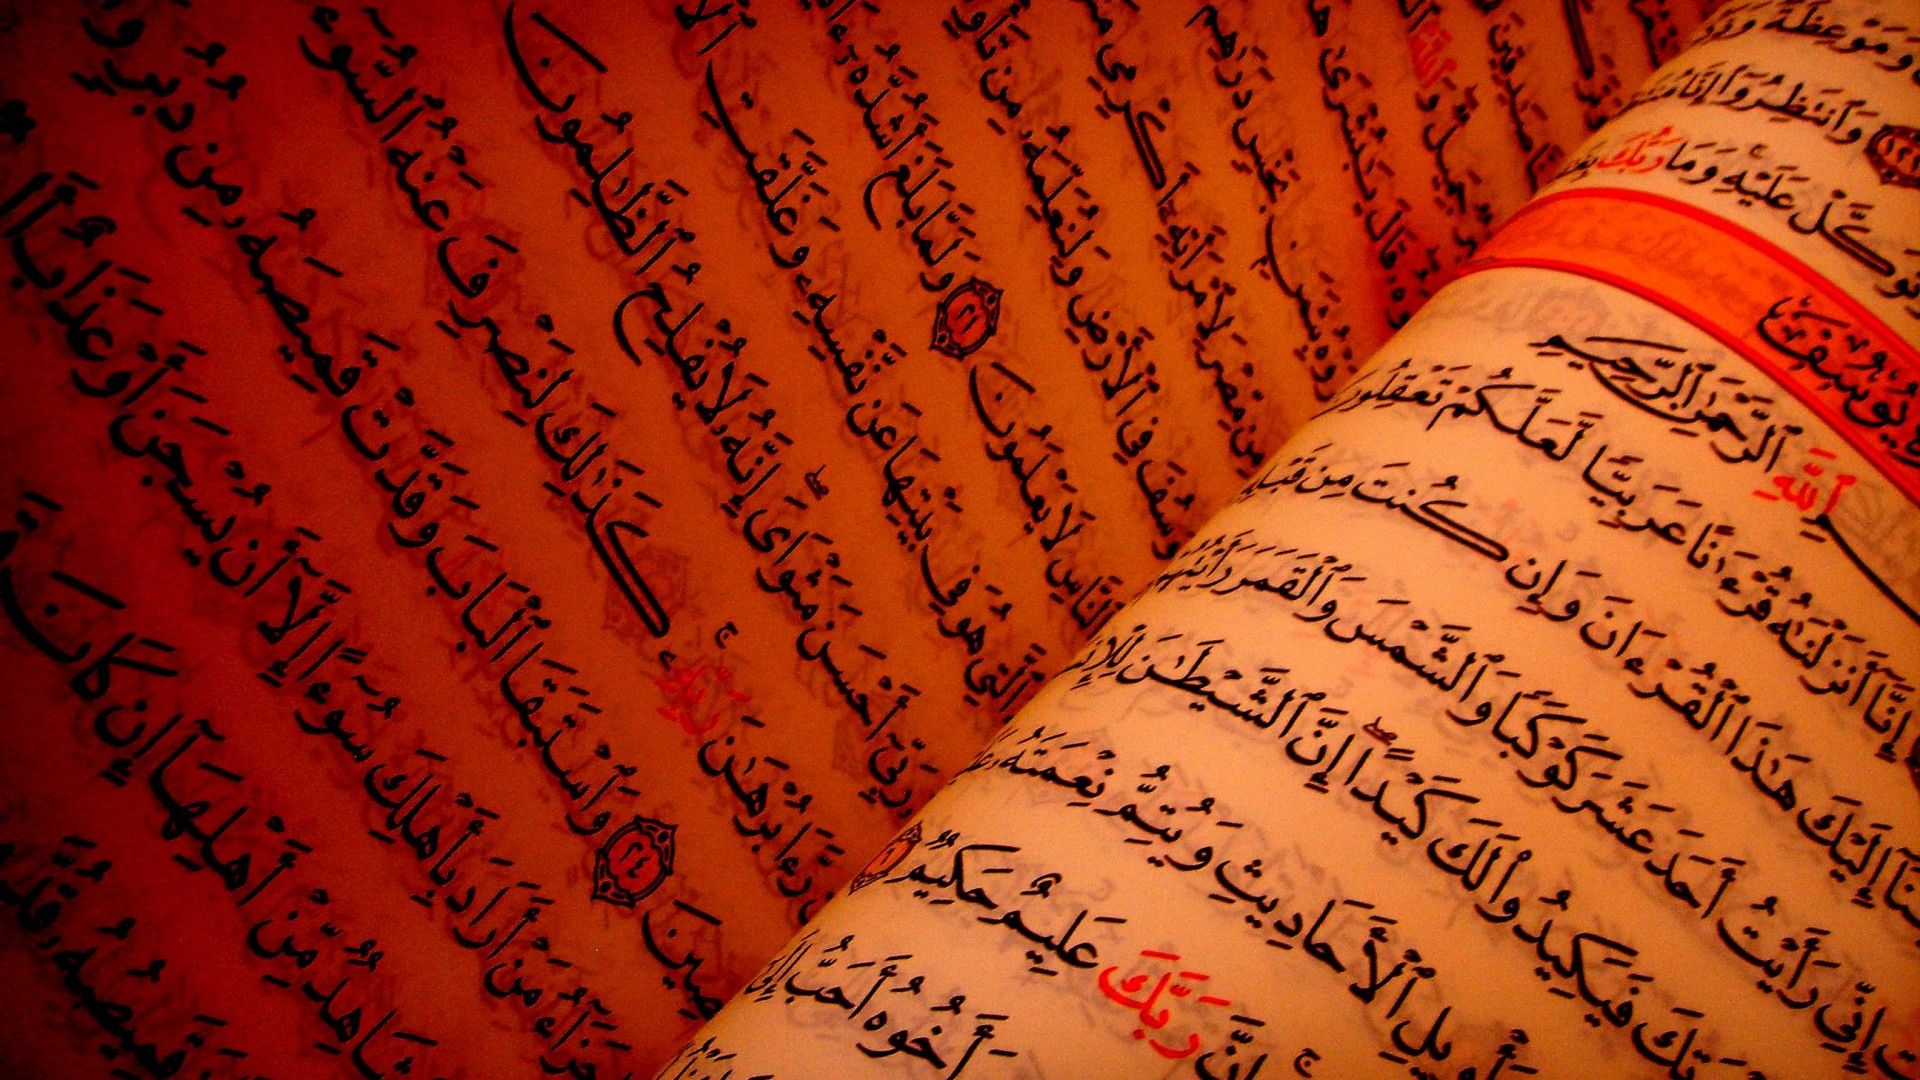 وَمَوْعِظَةٌ
وَٱنتَظِرُوٓا۟ إِنَّا
وَتَوَكَّلْ عَلَيْهِ وَمَا رَبُّكَ
يُوسُفَ
بِسْمِ ٱللَّهِ ٱلرَّحْمَـٰنِ ٱلرَّحِيمِ
إِنَّآ أَنزَلْنَـٰهُ قُرْءَٰنًا عَرَبِيًّا لَّعَلَّكُمْ تَعْقِلُونَ
إِلَيْكَ هَـٰذَا ٱلْقُرْءَانَ وَإِن كُنتَ مِن
إِنِّى رَأَيْتُ أَحَدَ عَشَرَ كَوْكَبًا وَٱلشَّمْسَ وَٱلْقَمَرَ
فَيَكِيدُوا۟ لَكَ كَيْدًا ۖ إِنَّ ٱلشَّيْطَـٰنَ
تَأْوِيلِ ٱلْأَحَادِيثِ وَيُتِمُّ نِعْمَتَهُۥ
إِنَّ رَبَّكَ عَلِيمٌ حَكِيمٌ ٦
أَخُوهُ أَحَبُّ
جَمِيلٌ وَٱللَّهُ
قَالَ يَـٰبُشْرَىٰ
بِثَمَنٍۭ بَخْسٍ دَرَٰهِمَ
مِن مِّصْرَ لِٱمْرَأَتِهِۦٓ أَكْرِمِى
فِى ٱلْأَرْضِ وَلِنُعَلِّمَهُۥ مِن
ٱلنَّاسِ لَا يَعْلَمُونَ ٢١ وَلَمَّا بَلَغَ أَشُدَّهُۥٓ
ٱلَّتِى هُوَ فِى بَيْتِهَا عَن نَّفْسِهِۦ وَغَلَّقَتِ
رَبِّىٓ أَحْسَنَ مَثْوَاىَ ۖ إِنَّهُۥ لَا يُفْلِحُ ٱلظَّـٰلِمُونَ
رَّءَا بُرْهَـٰنَ رَبِّهِۦ ۚ كَذَٰلِكَ لِنَصْرِفَ عَنْهُ ٱلسُّوٓءَ
٢٤ وَٱسْتَبَقَا ٱلْبَابَ وَقَدَّتْ قَمِيصَهُۥ مِن دُبُرٍ
جَزَآءُ مَنْ أَرَادَ بِأَهْلِكَ سُوٓءًا إِلَّآ أَن يُسْجَنَ أَوْ عَذَابٌ
شَاهِدٌ مِّنْ أَهْلِهَآ إِن كَانَ
قَمِيصُهُۥ قُدَّ